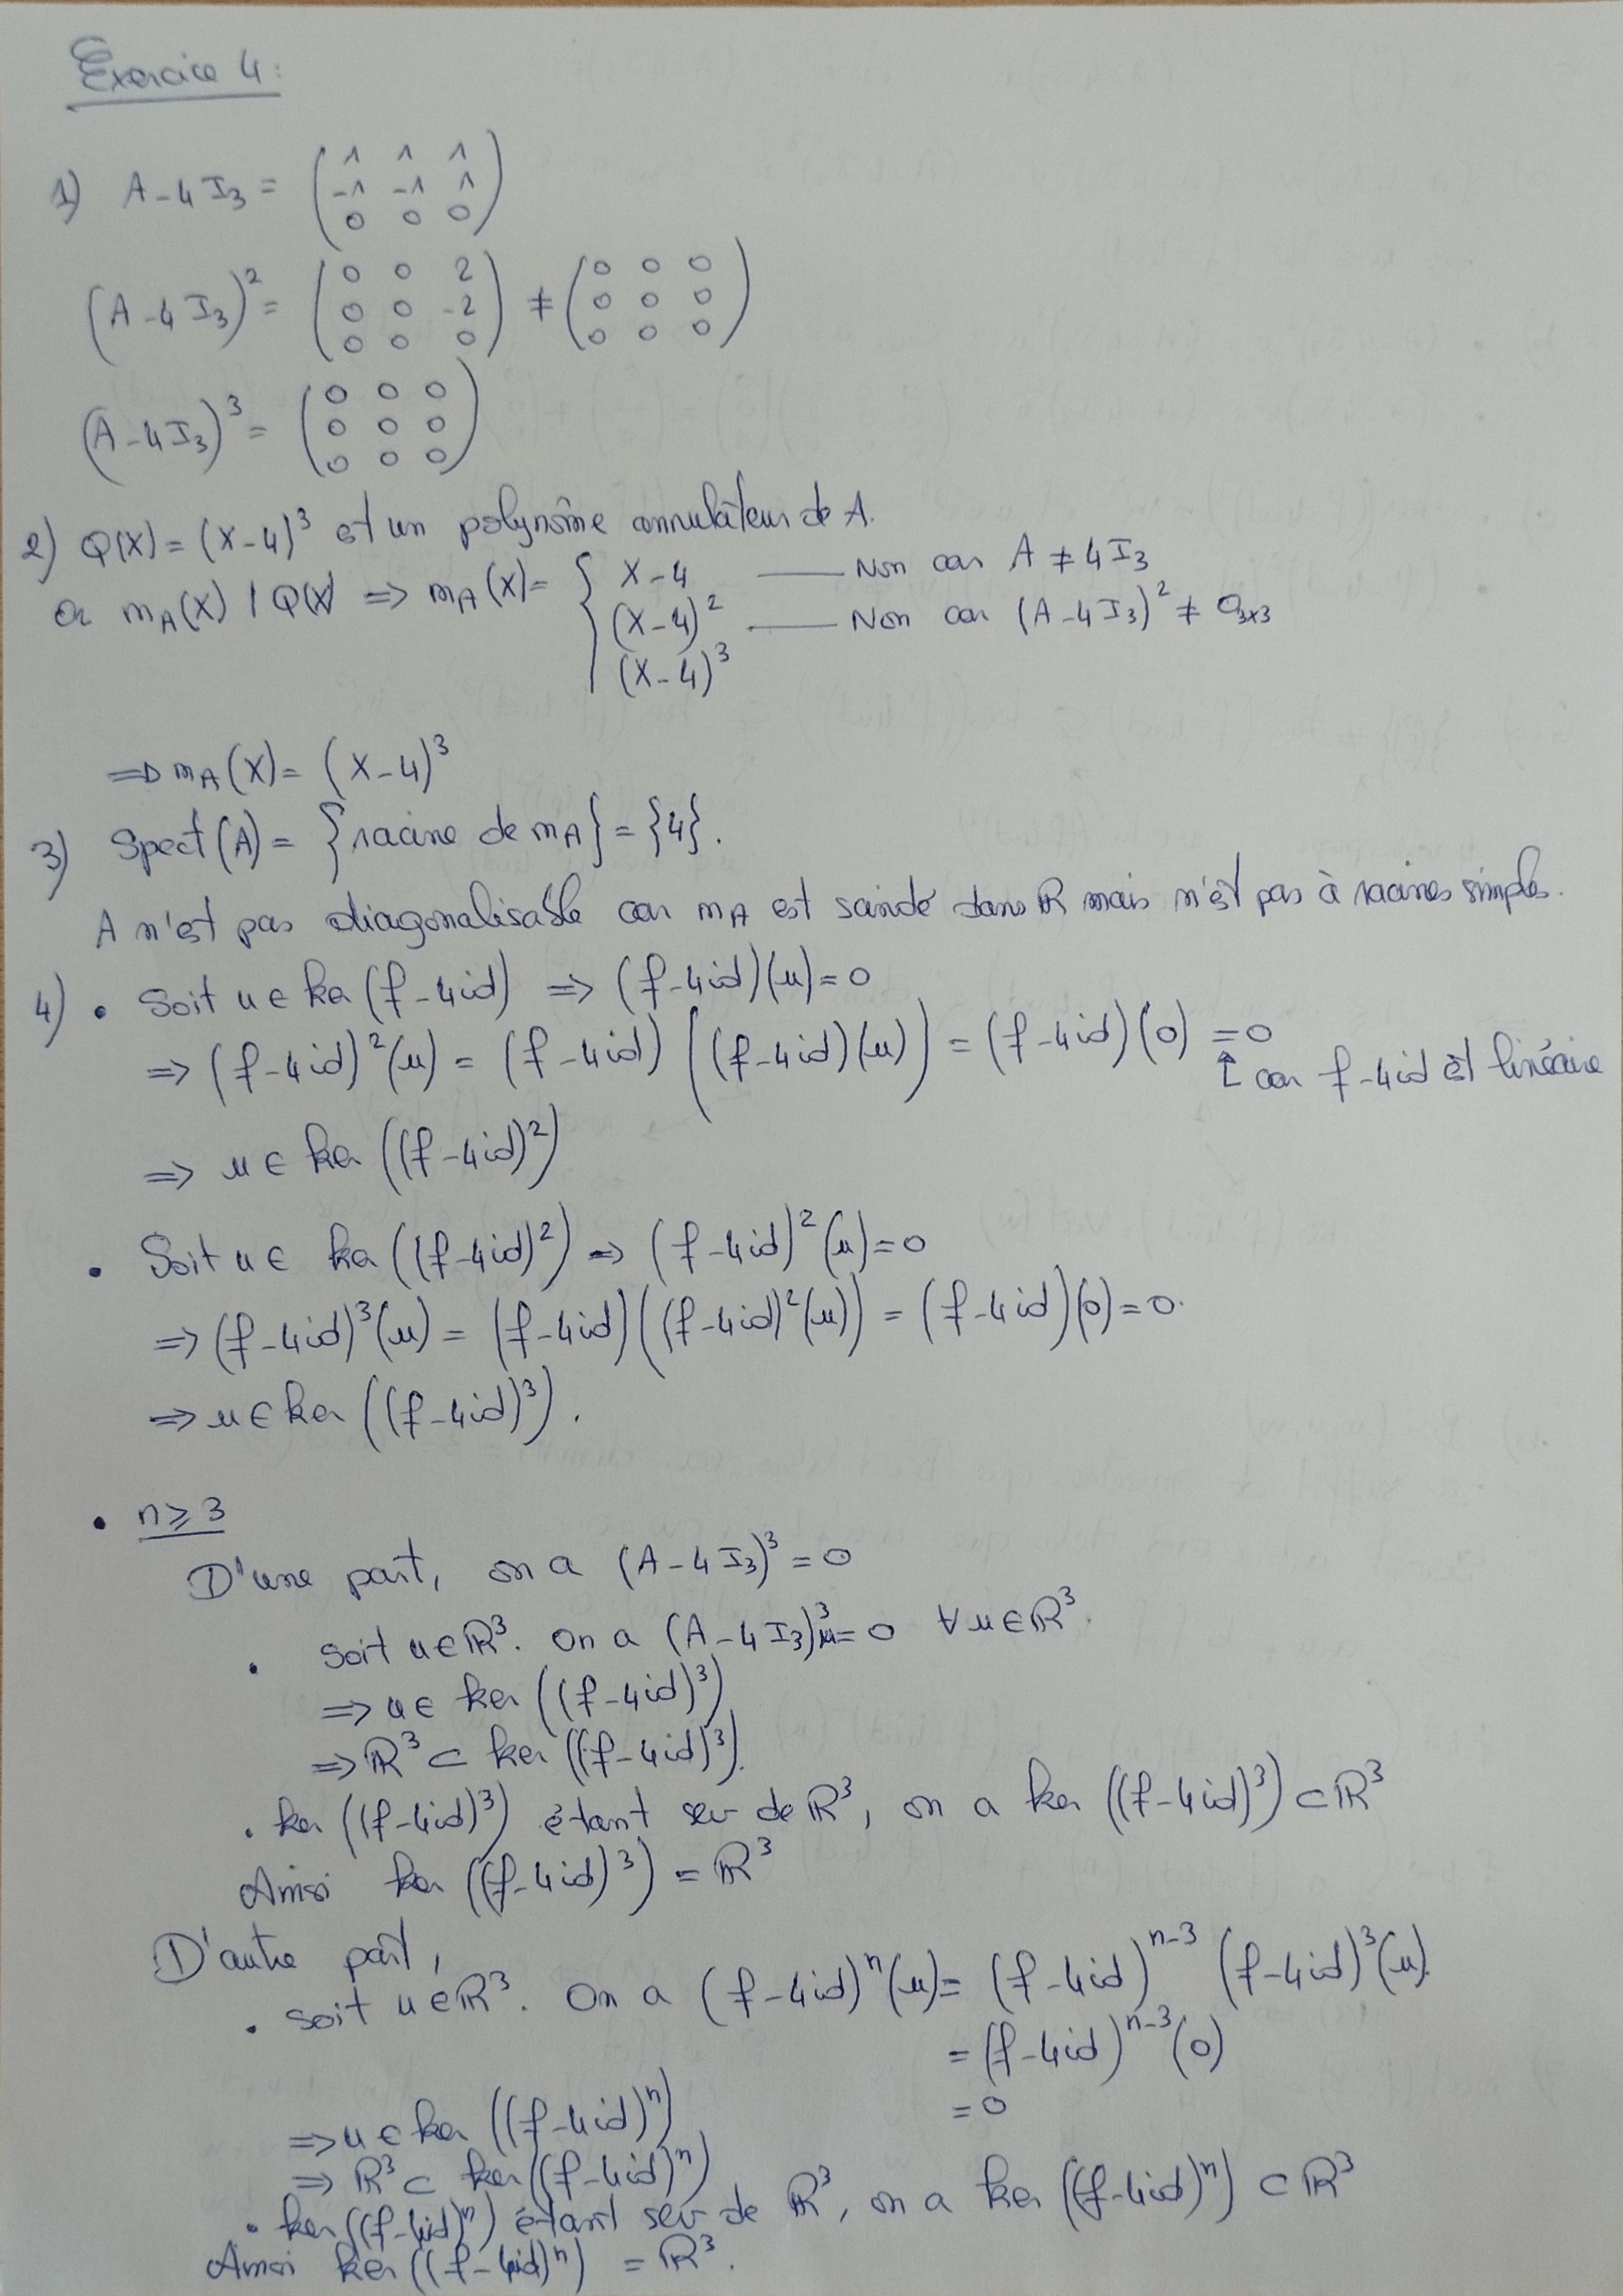 Exercice 4:
1) A-4I₃ = (1 1 1
-1 -1 1
0 0 0)
(A-4I₃)² = (0 0 2
0 0 -2
0 0 0) ≠ (0 0 0
0 0 0
0 0 0)
(A-4I₃)³ = (0 0 0
0 0 0
0 0 0)
2) Q(X) = (X-4)³ est un polynôme annulateur de A.
Or m_A(X) / Q(X) ⇒ m_A(X) = { X-4 —— Non car A ≠ 4I₃
(X-4)² —— Non car (A-4I₃)² ≠ 0₃ₓ₃
(X-4)³
⇒ m_A(X) = (X-4)³
3) Spect(A) = {racine de m_A} = {4}.
A n'est pas diagonalisable car m_A est scindé dans ℝ mais n'est pas à racines simples.
4) • Soit u ∈ ker(f-4id) ⇒ (f-4id)(u) = 0
⇒ (f-4id)²(u) = (f-4id)((f-4id)(u)) = (f-4id)(0) = 0
↑ car f-4id est linéaire
⇒ u ∈ ker((f-4id)²)
• Soit u ∈ ker((f-4id)²) ⇒ (f-4id)²(u) = 0
⇒ (f-4id)³(u) = (f-4id)((f-4id)²(u)) = (f-4id)(0) = 0.
⇒ u ∈ ker((f-4id)³).
• n ≥ 3
D'une part, on a (A-4I₃)³ = 0
• Soit u ∈ ℝ³. On a (A-4I₃)³u = 0 ∀u ∈ ℝ³.
⇒ u ∈ ker((f-4id)³)
⇒ ℝ³ ⊂ ker((f-4id)³).
• ker((f-4id)³) étant sev de ℝ³, on a ker((f-4id)³) ⊂ ℝ³
Ainsi ker((f-4id)³) = ℝ³
D'autre part,
• soit u ∈ ℝ³. On a (f-4id)ⁿ(u) = (f-4id)ⁿ⁻³ (f-4id)³(u).
= (f-4id)ⁿ⁻³(0)
= 0
⇒ u ∈ ker((f-4id)ⁿ)
⇒ ℝ³ ⊂ ker((f-4id)ⁿ)
• ker((f-4id)ⁿ) étant sev de ℝ³, on a ker((f-4id)ⁿ) ⊂ ℝ³
Ainsi ker((f-4id)ⁿ) = ℝ³.